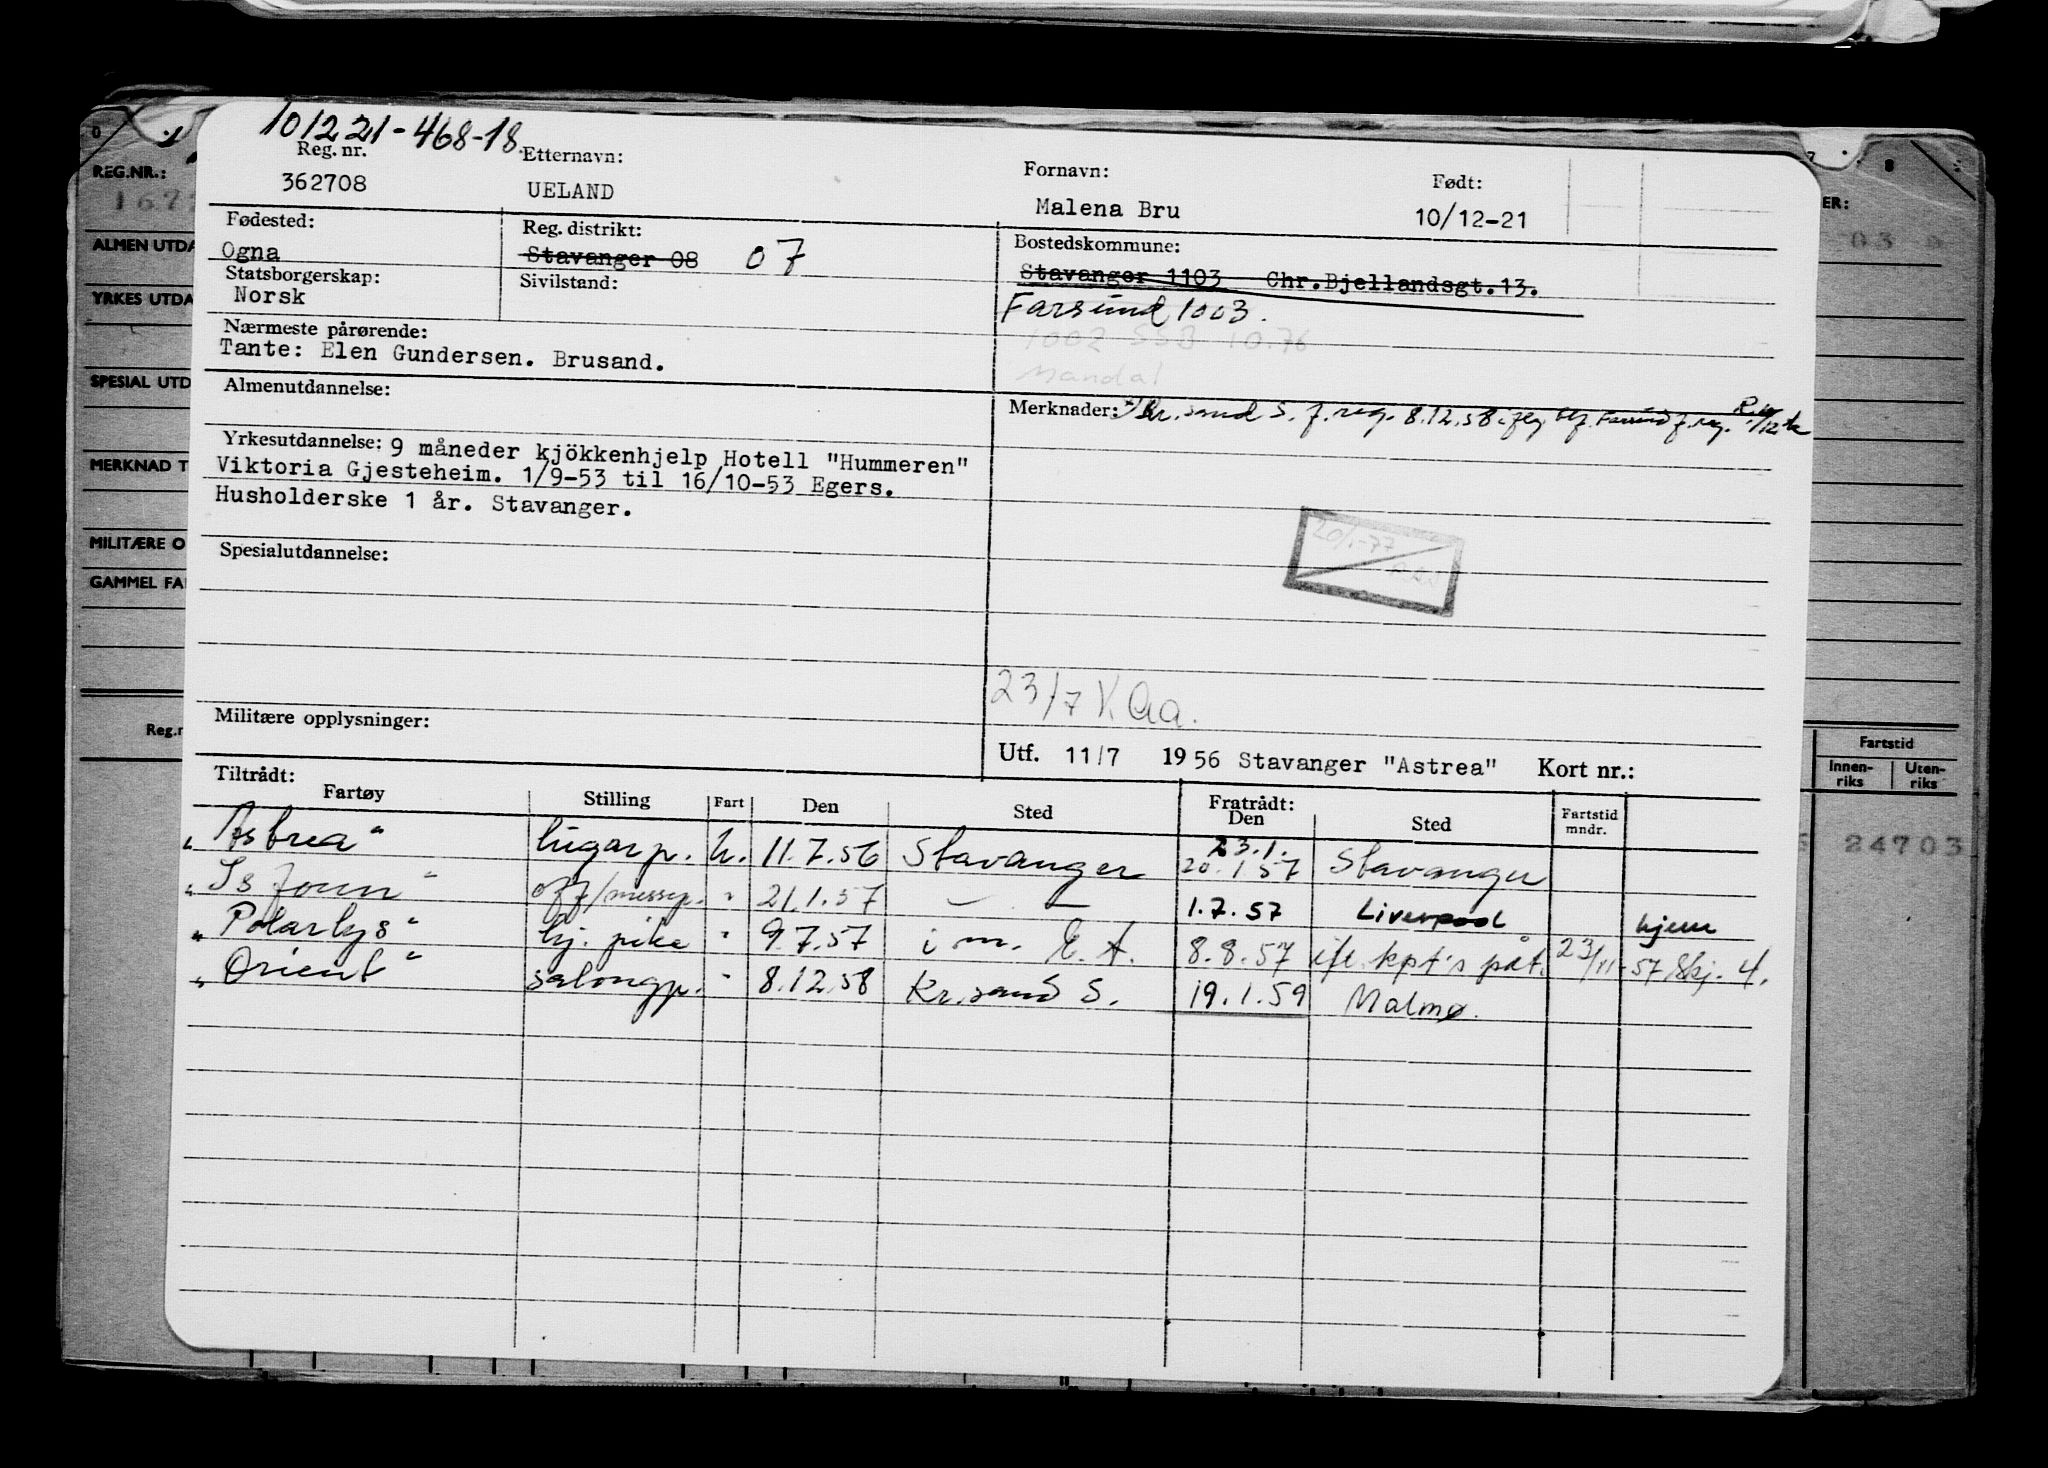 101221-468-18.
Reg. nr. Etternavn: Fornavn: Født:
362708 UELAND Malena Bru 10/12-21
Fødested: Reg. distrikt: Bostedskommune:
Ogna Stavanger 08 07 Stavanger 1103 Chr.Bjellandsgt.13.
Statsborgerskap: Sivilstand:
Norsk Farsund 1003.
Nærmeste pårørende: 1002 SSB 10.76
Tante: Elen Gundersen. Brusand. Mandal
Almenutdannelse:
Merknader: Kr.sand S. f. reg. 8.12.58 f. reg.
Yrkesutdannelse: 9 måneder kjökkenhjelp Hotell "Hummeren"
Viktoria Gjesteheim. 1/9-53 til 16/10-53 Egers.
Husholderske 1 år. Stavanger.
20/1-77
Spesialutdannelse:
23/7 K Aa.
Militære opplysninger:
Utf. 11/7 1956 Stavanger "Astrea" Kort nr.:
Tiltrådt: Fratrådt:
Fartøy Stilling Fart Den Sted Den Sted Fartstid mndr.
"Astrea" lugarp. u. 11.7.56 Stavanger 23.1. 20.1.57 Stavanger
"Isfonn" off/messep. " 21.1.57 — — 1.7.57 Liverpool hjem
"Polarlys" bj. pike " 9.7.57 i m. E. A. 8.8.57 ifl. kpt's påt. 23/11-57 Skj. 4.
"Orient" salongp. " 8.12.58 Kr.sand S. 19.1.59 Malmø.
REG.NR.:
ALMEN UTDA
YRKES UTDA
SPESIAL UTD
MERKNAD T
MILITÆRE O
GAMMEL FA
Reg.n
ER:
03
Fartstid
Innen-riks Uten-riks
24703